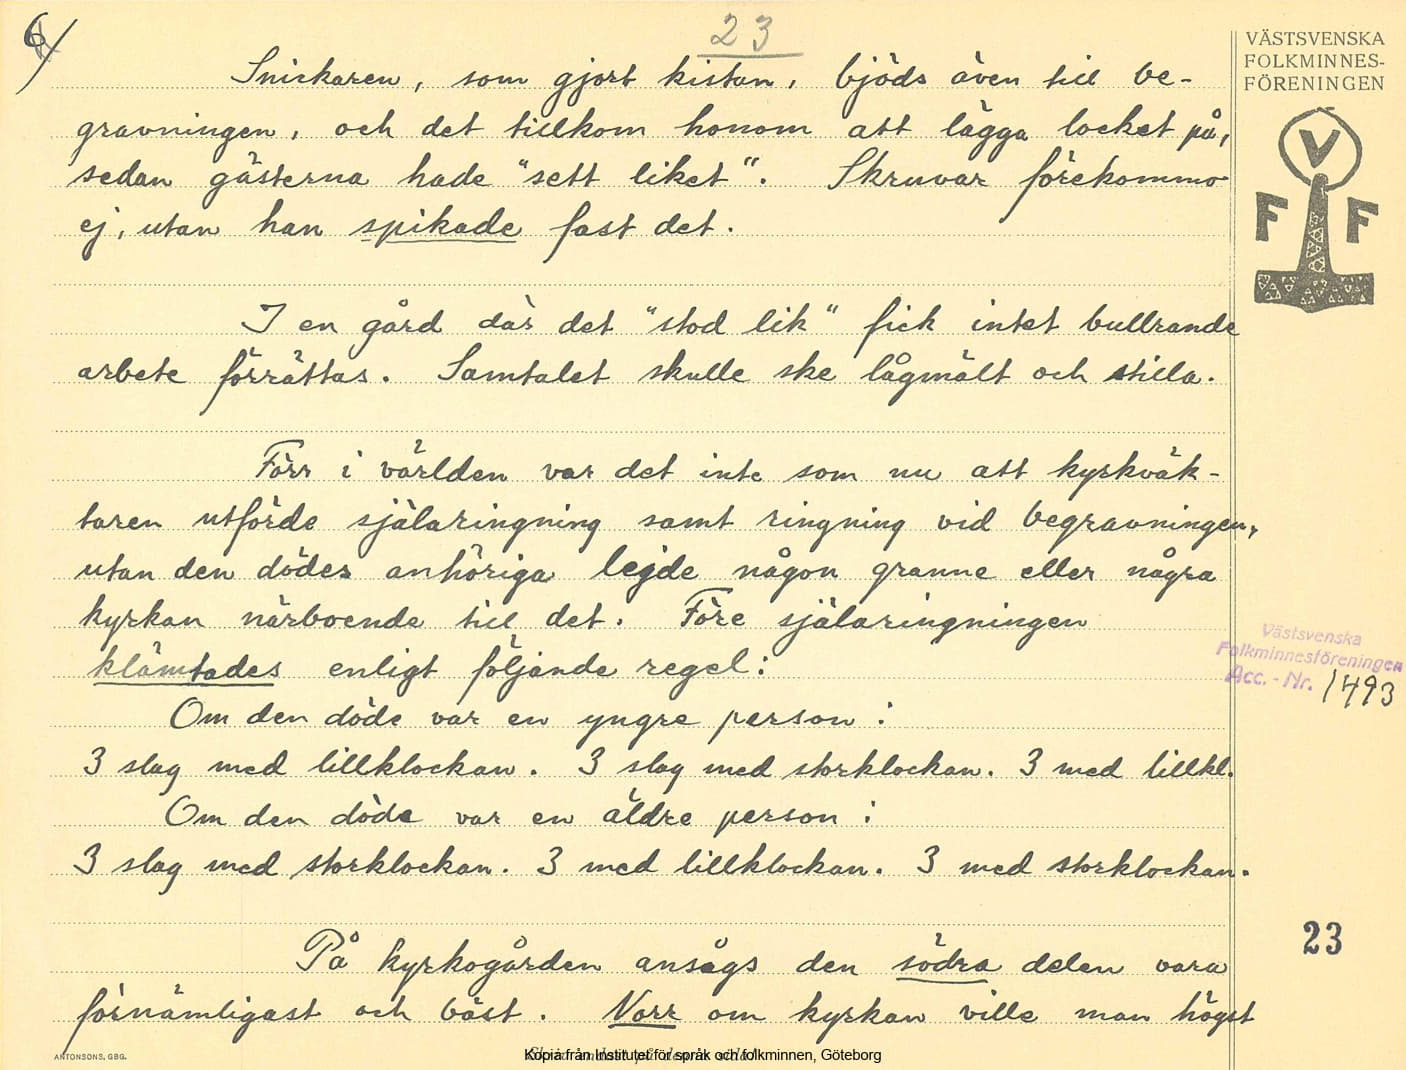 6)
23
VÄSTSVENSKA
FOLKMINNES-
FÖRENINGEN
V
F F
Snickaren, som gjort kistan, bjöds även till be-
gravningen, och det tillkom honom att lägga locket på,
sedan gästerna hade "sett liket". Skruvar förekommo
ej, utan han spikade fast det.
I en gård där det "stod lik" fick intet bullrande
arbete förrättas. Samtalet skulle ske lågmält och stilla.
Förr i världen var det inte som nu att kyrkväk-
taren utförde själaringning samt ringning vid begravningen,
utan den dödes anhöriga lejde någon granne eller några
kyrkan närboende till det. Före själaringningen
klämtades enligt följande regel:
Västsvenska
Folkminnesföreningen
Acc.-Nr. 1493
Om den döde var en yngre person:
3 slag med lillklockan. 3 slag med storklockan. 3 med lillkl.
Om den döde var en äldre person:
3 slag med storklockan. 3 med lillklockan. 3 med storklockan.
23
På kyrkogården ansågs den södra delen vara
förnämligast och bäst. Norr om kyrkan ville man högst
ANTONSONS, GBG.
Kopia från Institutet för språk och folkminnen, Göteborg